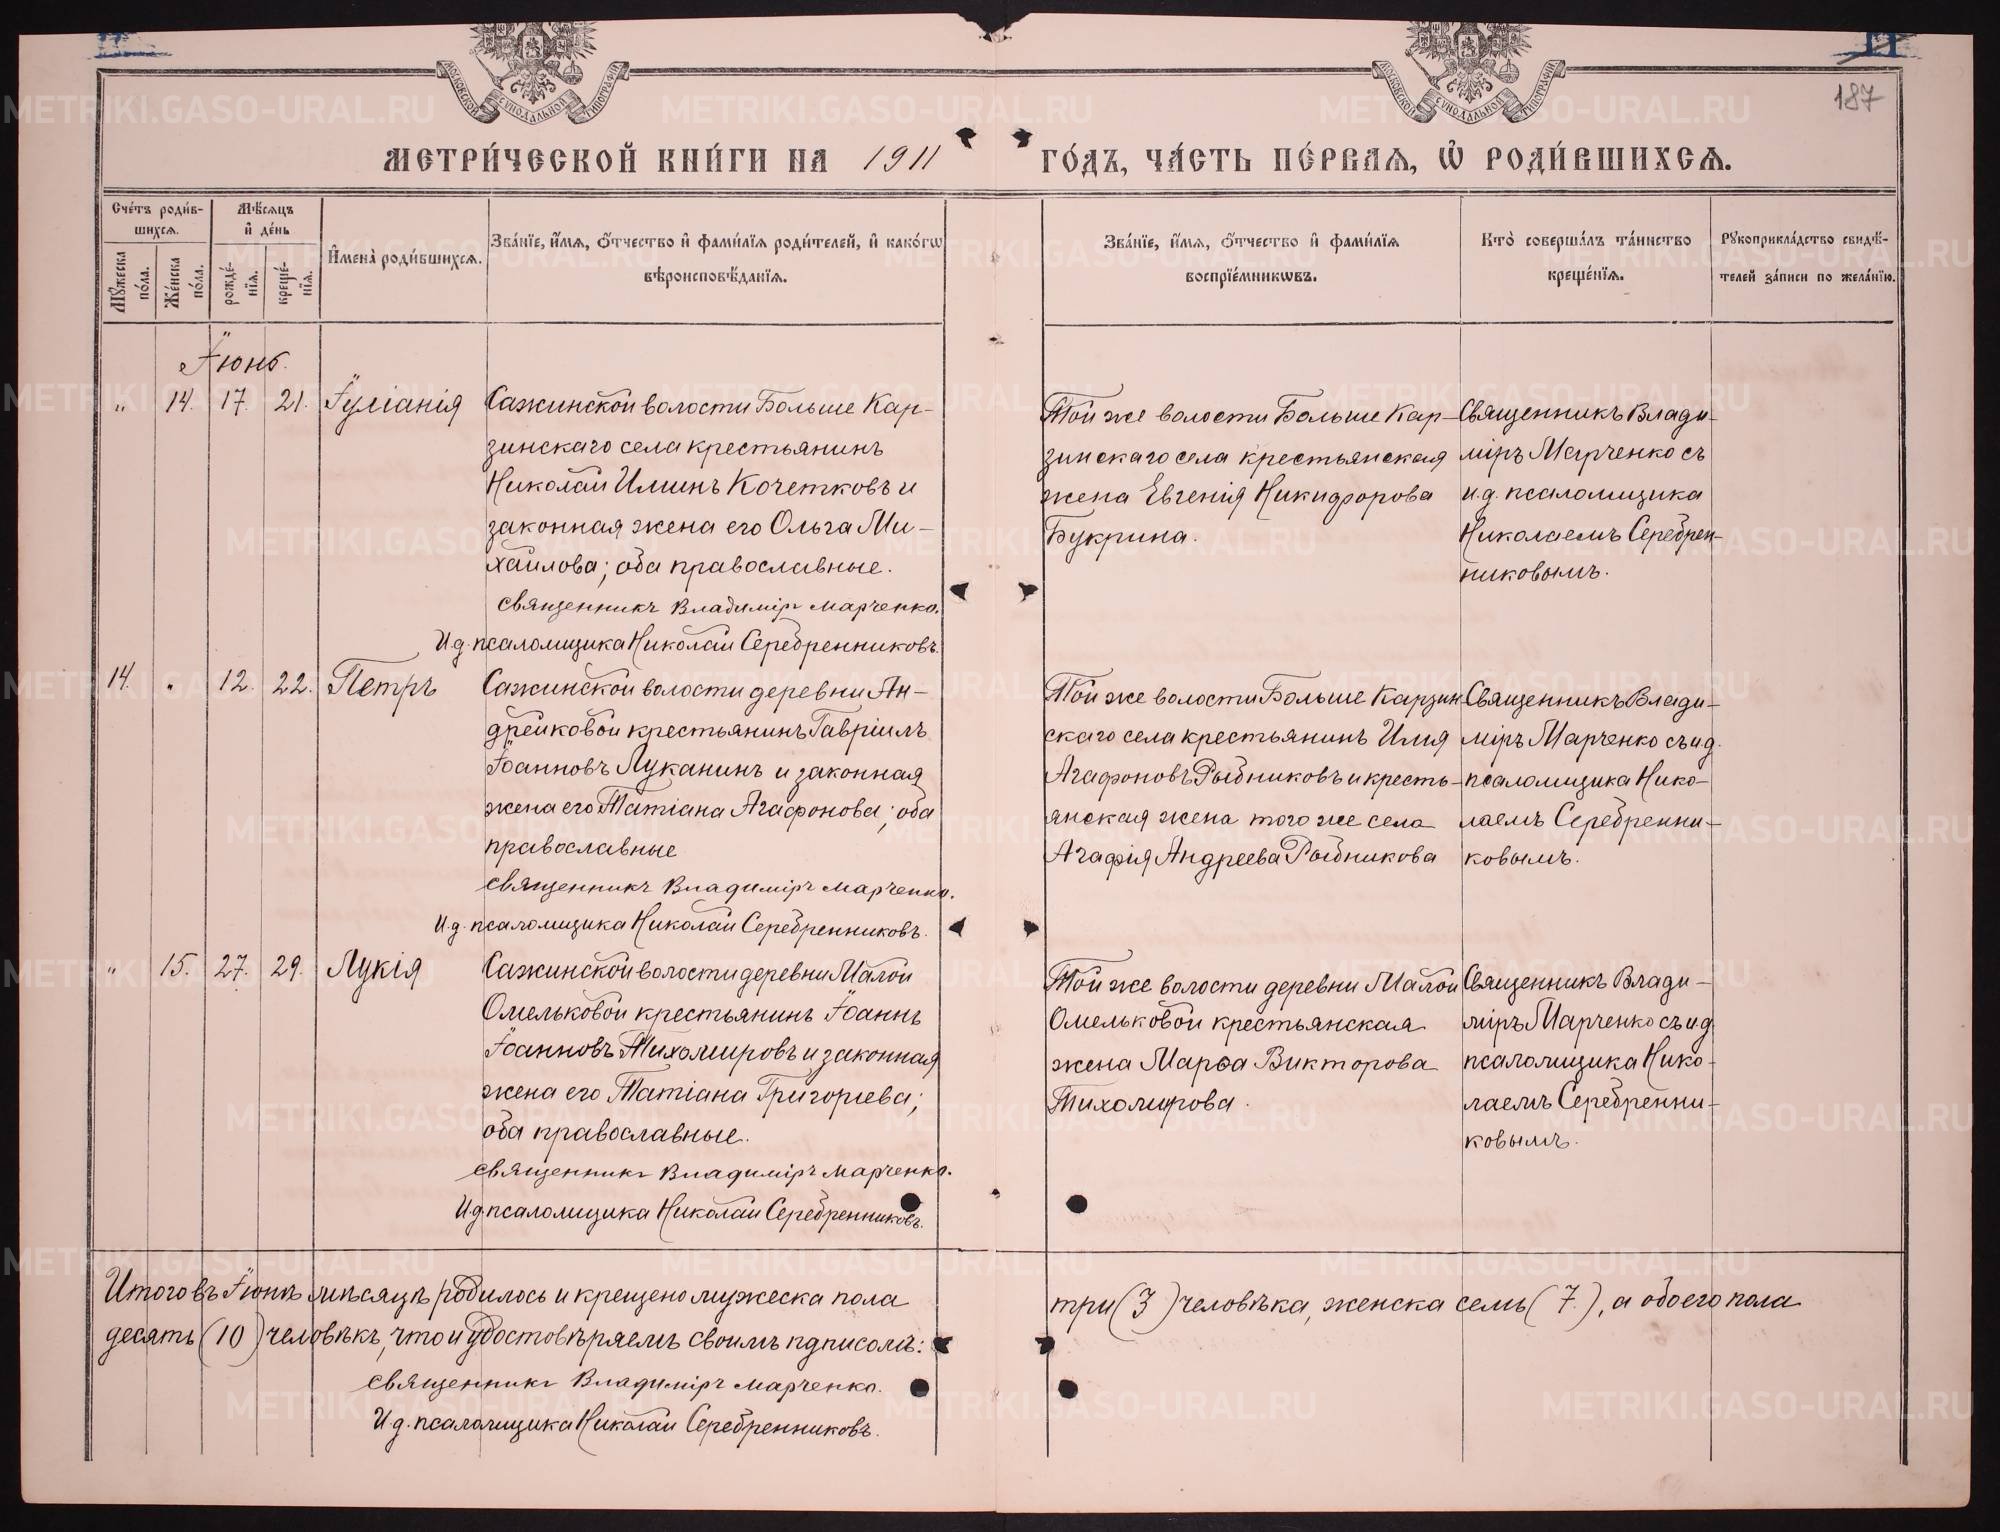 МОСКОВСКОЙ СѴНОДАЛЬНОЙ ТИПОГРАФІИ
МОСКОВСКОЙ СѴНОДАЛЬНОЙ ТИПОГРАФІИ
187
МЕТРИ́ЧЕСКОЙ КНИ́ГИ НА 1911 ГО́ДЪ, ЧА́СТЬ ПЕ́РВАѦ, Ѡ҆ РОДИ́ВШИХСѦ.
Сче́тъ роди́в-
шихсѧ.
Мꙋ́жеска по́ла.
Же́нска по́ла.
Мѣ́сѧцъ
и҆ де́нь
рожде́-
нїѧ.
креще́-
нїѧ.
И҆мена̀ роди́вшихсѧ.
Зва́нїе, и҆́мѧ, ѻ҆́тчество и҆ фами́лїѧ роди́телей, и҆ како́гѡ
вѣроисповѣ́данїѧ.
Зва́нїе, и҆́мѧ, ѻ҆́тчество и҆ фами́лїѧ
воспрїе́мникѡвъ.
Кто̀ соверша́лъ та́инство
креще́нїѧ.
Рꙋкоприкла́дство свидѣ́-
телей за́писи по жела́нїю.
Іюнь.
" 14. 17. 21. Іуліанія
Сажинской волости Больше Кар-
зинскаго села крестьянинъ
Николай Илиинъ Кочетковъ и
законная жена его Ольга Ми-
хайлова; оба православные.
Священникъ Владиміръ Марченко.
И.д. псаломщика Николай Серебренниковъ.
Той же волости Больше Кар-
зинскаго села крестьянская
жена Евгенія Никифорова
Букрина.
Священникъ Влади-
міръ Марченко съ
и.д. псаломщика
Николаемъ Серебрен-
никовымъ.
14. " 12. 22. Петръ
Сажинской волости деревни Ан-
дрейковой крестьянинъ Гавріилъ
Іоанновъ Луканинъ и законная
жена его Татіана Агафонова; оба
православные
Священникъ Владиміръ Марченко.
И.д. псаломщика Николай Серебренниковъ.
Той же волости Больше Карзин
скаго села крестьянинъ Илия
Агафоновъ Рыбниковъ и кресть-
янская жена того же села
Агафія Андреева Рыбникова
Священникъ Влади-
міръ Марченко съ и.д.
псаломщика Нико-
лаемъ Серебренни-
ковымъ.
" 15. 27. 29. Лукія
Сажинской волости деревни Малой
Омельковой крестьянинъ Іоаннъ
Іоанновъ Тихомировъ и законная
жена его Татіана Григорьева;
оба православные.
Священникъ Владиміръ Марченко.
И.д. псаломщика Николай Серебренниковъ.
Той же волости деревни Малой
Омельковой крестьянская
жена Марѳа Викторова
Тихомирова.
Священникъ Влади-
міръ Марченко съ и.д.
псаломщика Нико-
лаемъ Серебренни-
ковымъ.
Итого въ Іюнѣ мѣсяцѣ родилось и крещено мужеска пола три (3) человѣка, женска семь (7), а обоего пола
десять (10) человѣкъ, что и удостовѣряемъ своимъ пдписомъ:
Священникъ Владиміръ Марченко.
И.д. псаломщика Николай Серебренниковъ.
METRIKI.GASO-URAL.RU